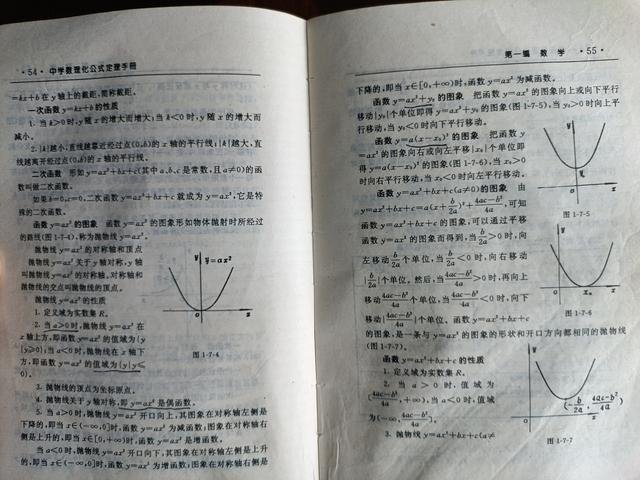 · 54 · 中学数理化公式定理手册
=kx+b 在 y 轴上的截距,简称截距。
一次函数 y=kx+b 的性质
1. 当 k>0 时,y 随 x 的增大而增大;当 k<0 时,y 随 x 的增大而
减小。
2. |k|越小,直线越靠近经过点(0,b)的 x 轴的平行线;|k|越大,直
线越离开经过点(0,b)的 x 轴的平行线。
二次函数 形如 y=ax²+bx+c(其中 a,b,c 是常数,且 a≠0)的函
数叫做二次函数。
如果 b=0,c=0,二次函数 y=ax²+bx+c 就成为 y=ax²,它是特
殊的二次函数。
函数 y=ax² 的图象 函数 y=ax² 的图象形如物体抛射时所经过
的路线(图 1-7-4),称为抛物线 y=ax²。
抛物线 y=ax² 的对称轴和顶点
抛物线 y=ax² 关于 y 轴对称,y 轴
叫抛物线 y=ax² 的对称轴。对称轴和
抛物线的交点叫抛物线的顶点。
抛物线 y=ax² 的性质
1. 定义域为实数集 R。
2. 当 a>0 时,抛物线 y=ax² 在
x 轴上方,即函数 y=ax² 的值域为{y
|y≥0};当 a<0 时,抛物线在 x 轴下
方,即函数 y=ax² 的值域为{y|y≤
0}。
y
y=ax²
x
图 1-7-4
3. 抛物线的顶点为坐标原点。
4. 抛物线关于 y 轴对称,即 y=ax² 是偶函数。
5. 当 a>0 时,抛物线 y=ax² 开口向上,其图象在对称轴左侧是
下降的,即当 x∈(-∞,0]时,函数 y=ax² 为减函数;图象在对称轴右
侧是上升的,即当 x∈[0,+∞)时,函数 y=ax² 是增函数。
当 a<0 时,抛物线 y=ax² 开口向下,其图象在对称轴左侧是上升
的,即当 x∈(-∞,0]时,函数 y=ax² 为增函数;图象在对称轴右侧是
第一编 数 学 · 55 ·
下降的,即当 x∈[0,+∞)时,函数 y=ax² 为减函数。
函数 y=ax²+y₀ 的图象 把函数 y=ax² 的图象向上或向下平行
移动|y₀|个单位即得 y=ax²+y₀ 的图象(图 1-7-5),当 y₀>0 时向上平
行移动,当 y₀<0 时向下平行移动。
函数 y=a(x-x₀)² 的图象 把函数 y
=ax² 的图象向右或向左平移|x₀|个单位即
得 y=a(x-x₀)² 的图象(图 1-7-6),当 x₀>0
时向右平行移动,当 x₀<0 时向左平行移动。
函数 y=ax²+bx+c(a≠0)的图象 由
y=ax²+bx+c=a(x+b/2a)²+(4ac-b²)/4a,可知
函数 y=ax²+bx+c 的图象,可以通过平移
函数 y=ax² 的图象而得到,当 b/2a>0 时,向
左移动 b/2a 个单位,当 b/2a<0 时,向右移动
|b/2a|个单位。然后,当 (4ac-b²)/4a>0 时,再向上
移动 (4ac-b²)/4a 个单位,当 (4ac-b²)/4a<0 时,向下
移动|(4ac-b²)/4a|个单位。函数 y=ax²+bx+c
的图象,是一条与 y=ax² 的图象的形状和开口方向都相同的抛物线
(图 1-7-7)。
函数 y=ax²+bx+c 的性质
1. 定义域为实数集 R。
2. 当 a>0 时,值域为
[(4ac-b²)/4a,+∞),当 a<0 时,值域
为(-∞,(4ac-b²)/4a]。
3. 抛物线 y=ax²+bx+c(a≠
y
y₀
o
x
图 1-7-5
y
x₀
x
图 1-7-6
y
x
(-b/2a, (4ac-b²)/4a)
图 1-7-7